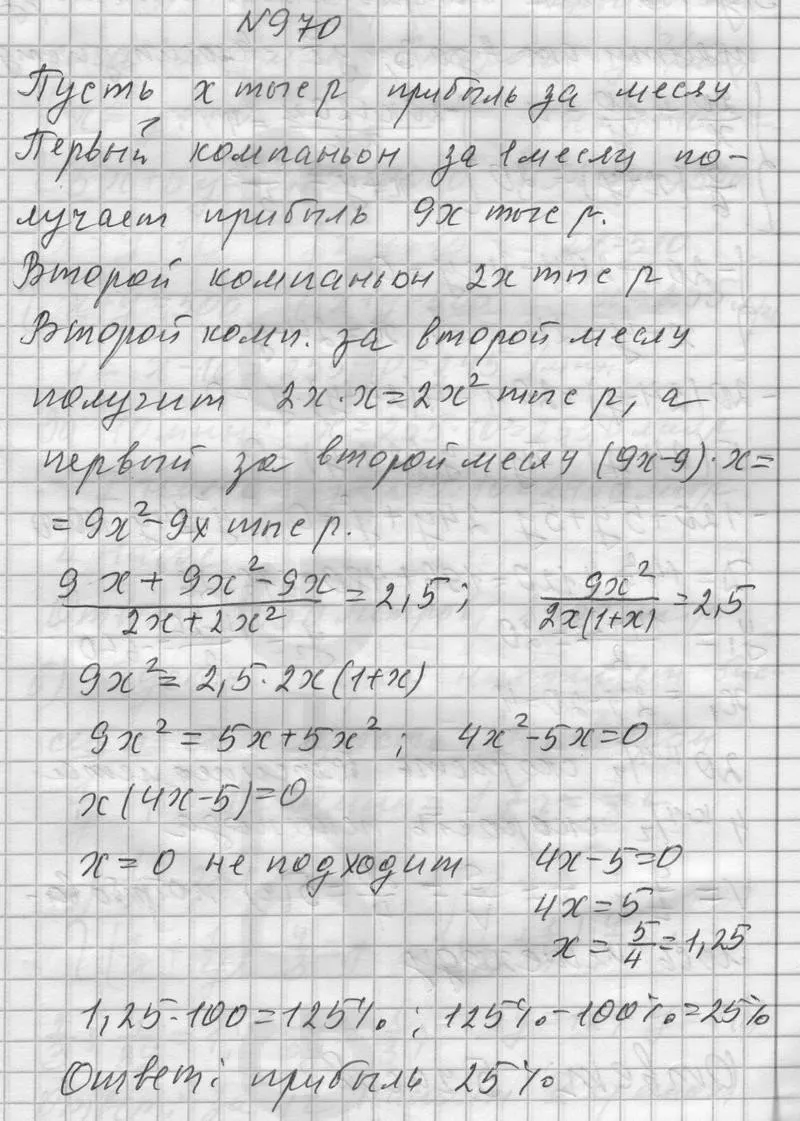 №970
Пусть x тыс р прибыль за месяц
Первый компаньон за 1 месяц по-
лучает прибыль 9x тыс р.
Второй компаньон 2x тыс р
Второй комп. за второй месяц
получит 2x·x=2x² тыс р, а
первый за второй месяц (9x-9)·x=
=9x²-9x тыс р.
(9x+9x²-9x)/(2x+2x²)=2,5; 9x²/(2x(1+x))=2,5
9x²=2,5·2x(1+x)
9x²=5x+5x²; 4x²-5x=0
x(4x-5)=0
x=0 не подходит 4x-5=0
4x=5
x=5/4=1,25
1,25·100=125%; 125%-100%=25%
Ответ: прибыль 25%